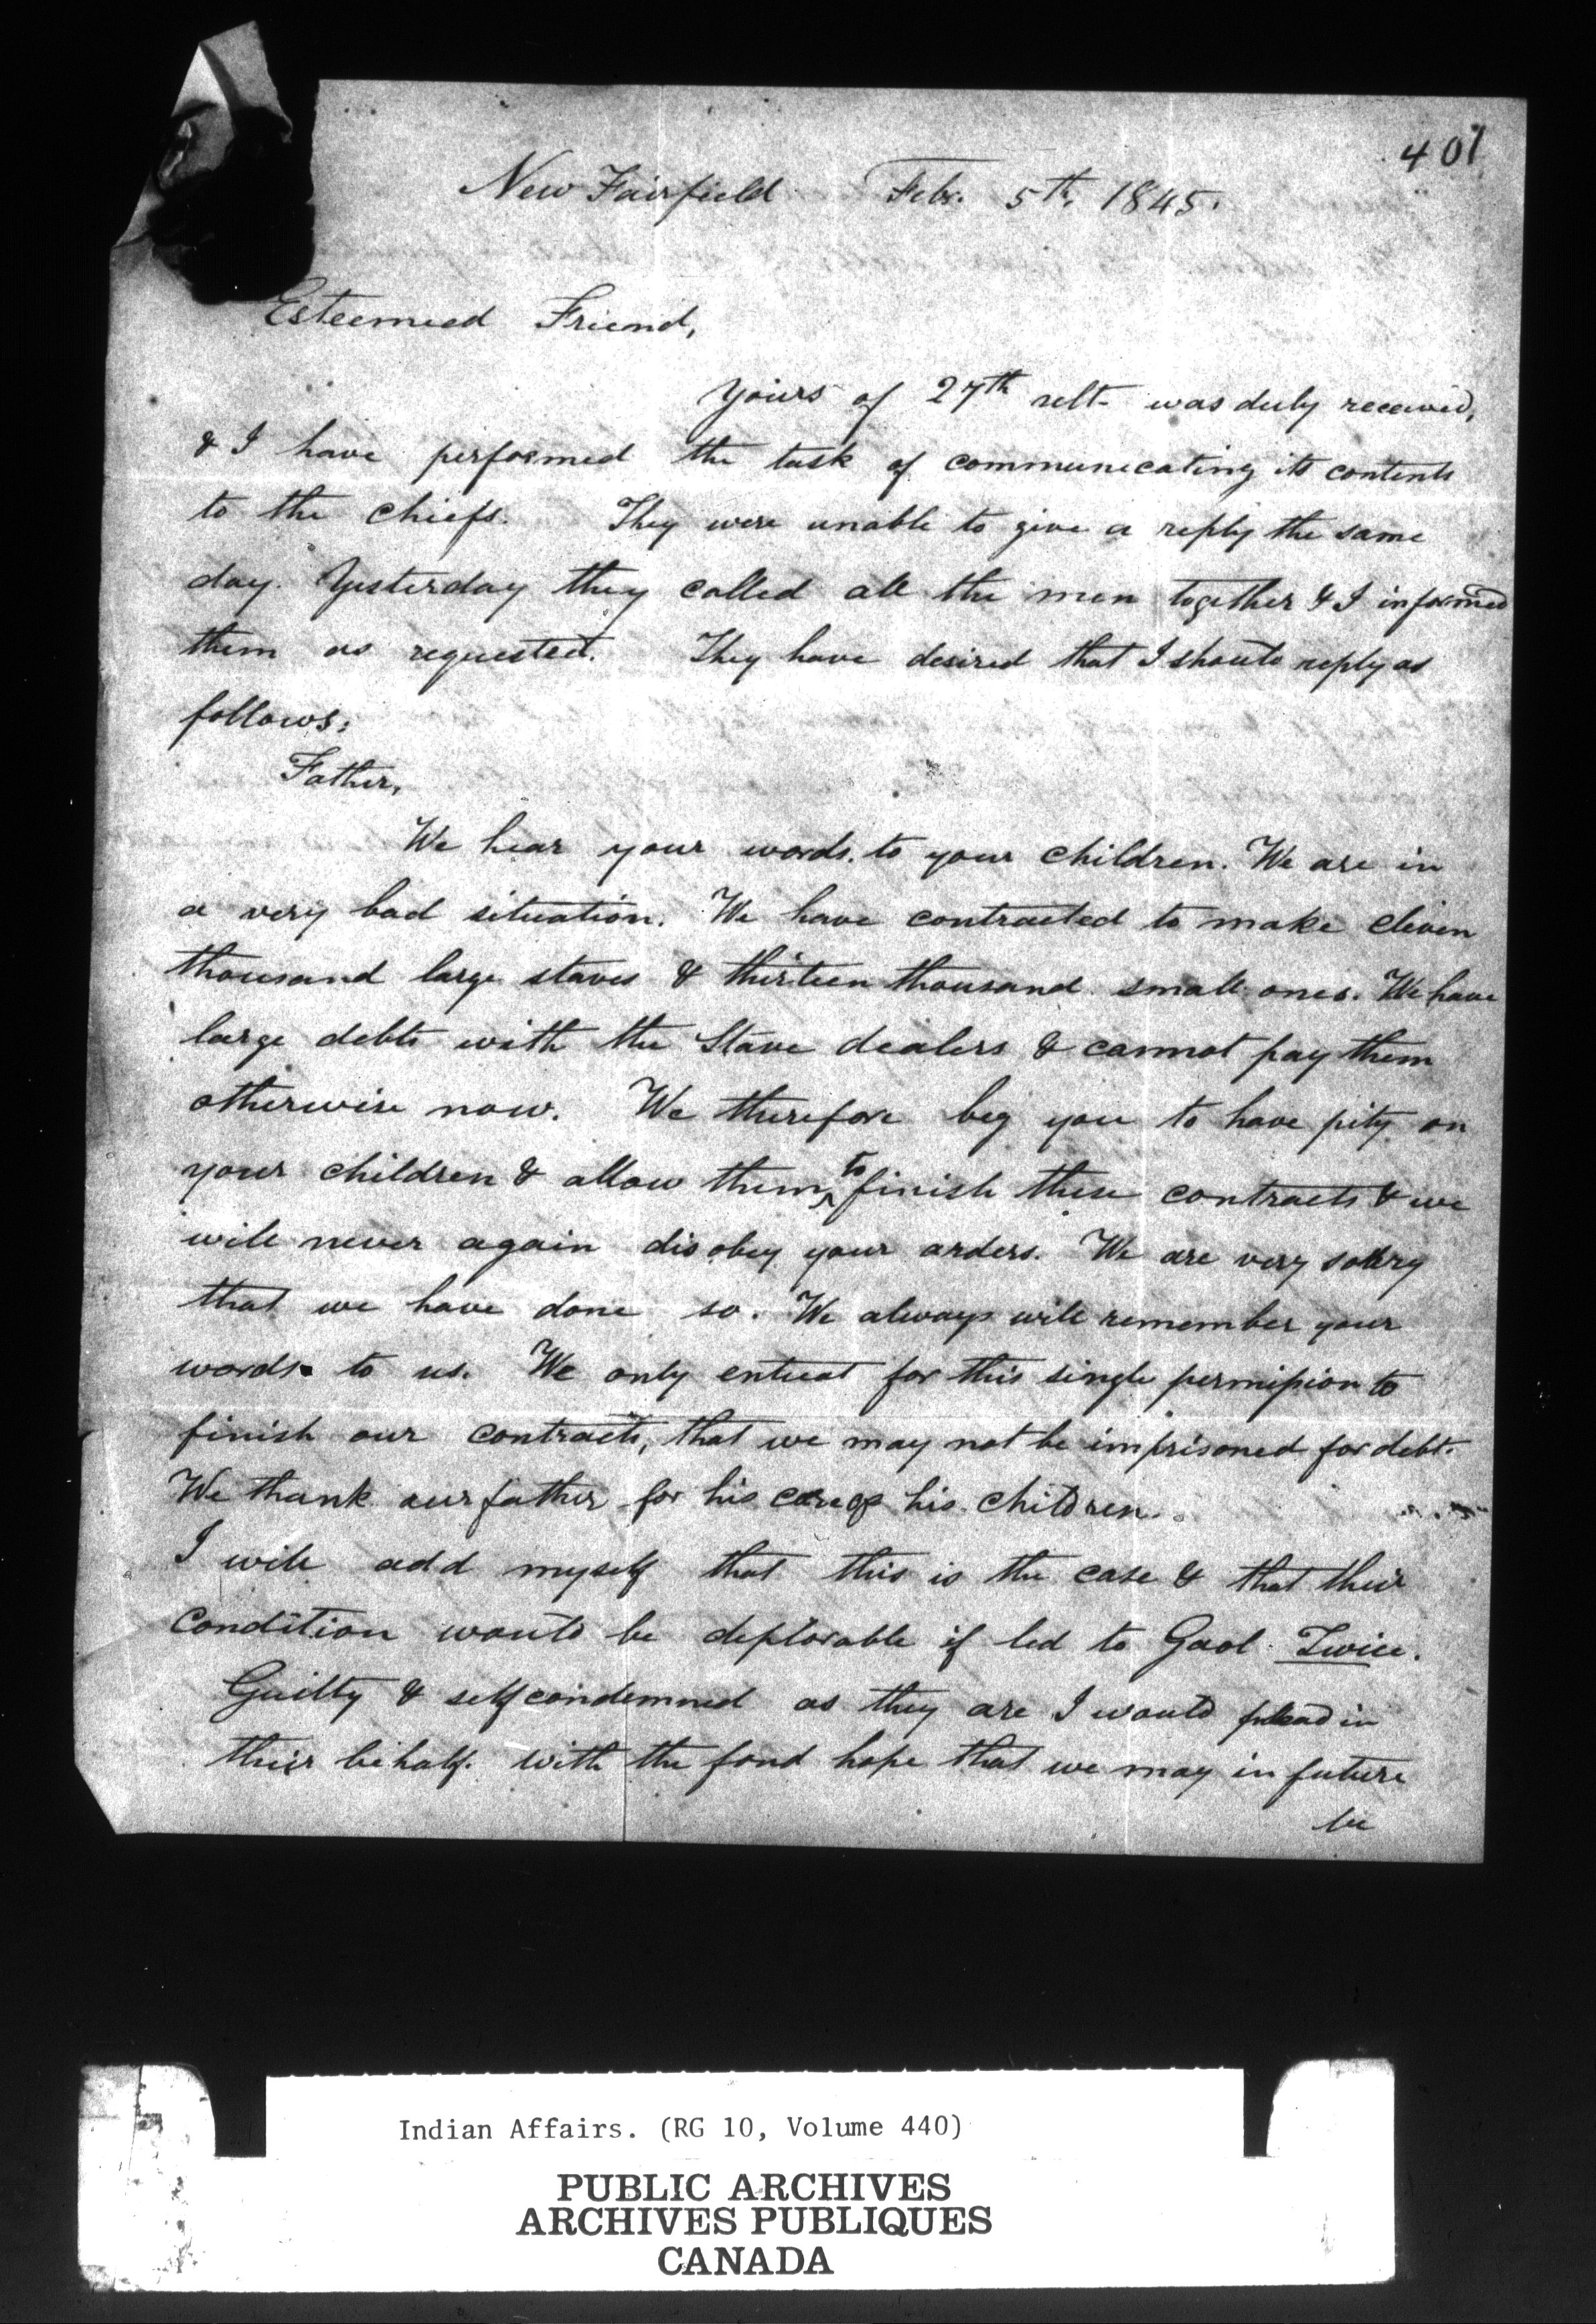 401
New Fairfield Febr. 5th. 1845.
Esteemed Friend,
Yours of 27th ult. was duly received,
& I have performed the task of communicating its contents
to the chiefs. They were unable to give a reply the same
day. Yesterday they called all the men together & I informed
them as requested. They have desired that I should reply as
follows:
Father,
We hear your words to your children. We are in
a very bad situation. We have contracted to make eleven
thousand large staves & thirteen thousand small ones. We have
large debts with the Stave dealers & cannot pay them
otherwise now. We therefore beg you to have pity on
your children & allow them to finish these contracts & we
will never again disobey your orders. We are very sorry
that we have done so. We always will remember your
words to us. We only entreat for this single permission to
finish our contracts, that we may not be imprisoned for debt.
We thank our father for his care of his children.
I will add myself that this is the case & that their
condition would be deplorable if led to Gaol Twice.
Guilty & selfcondemned as they are I would plead in
their behalf with the fond hope that we may in future
be
Indian Affairs. (RG 10, Volume 440)
PUBLIC ARCHIVES
ARCHIVES PUBLIQUES
CANADA